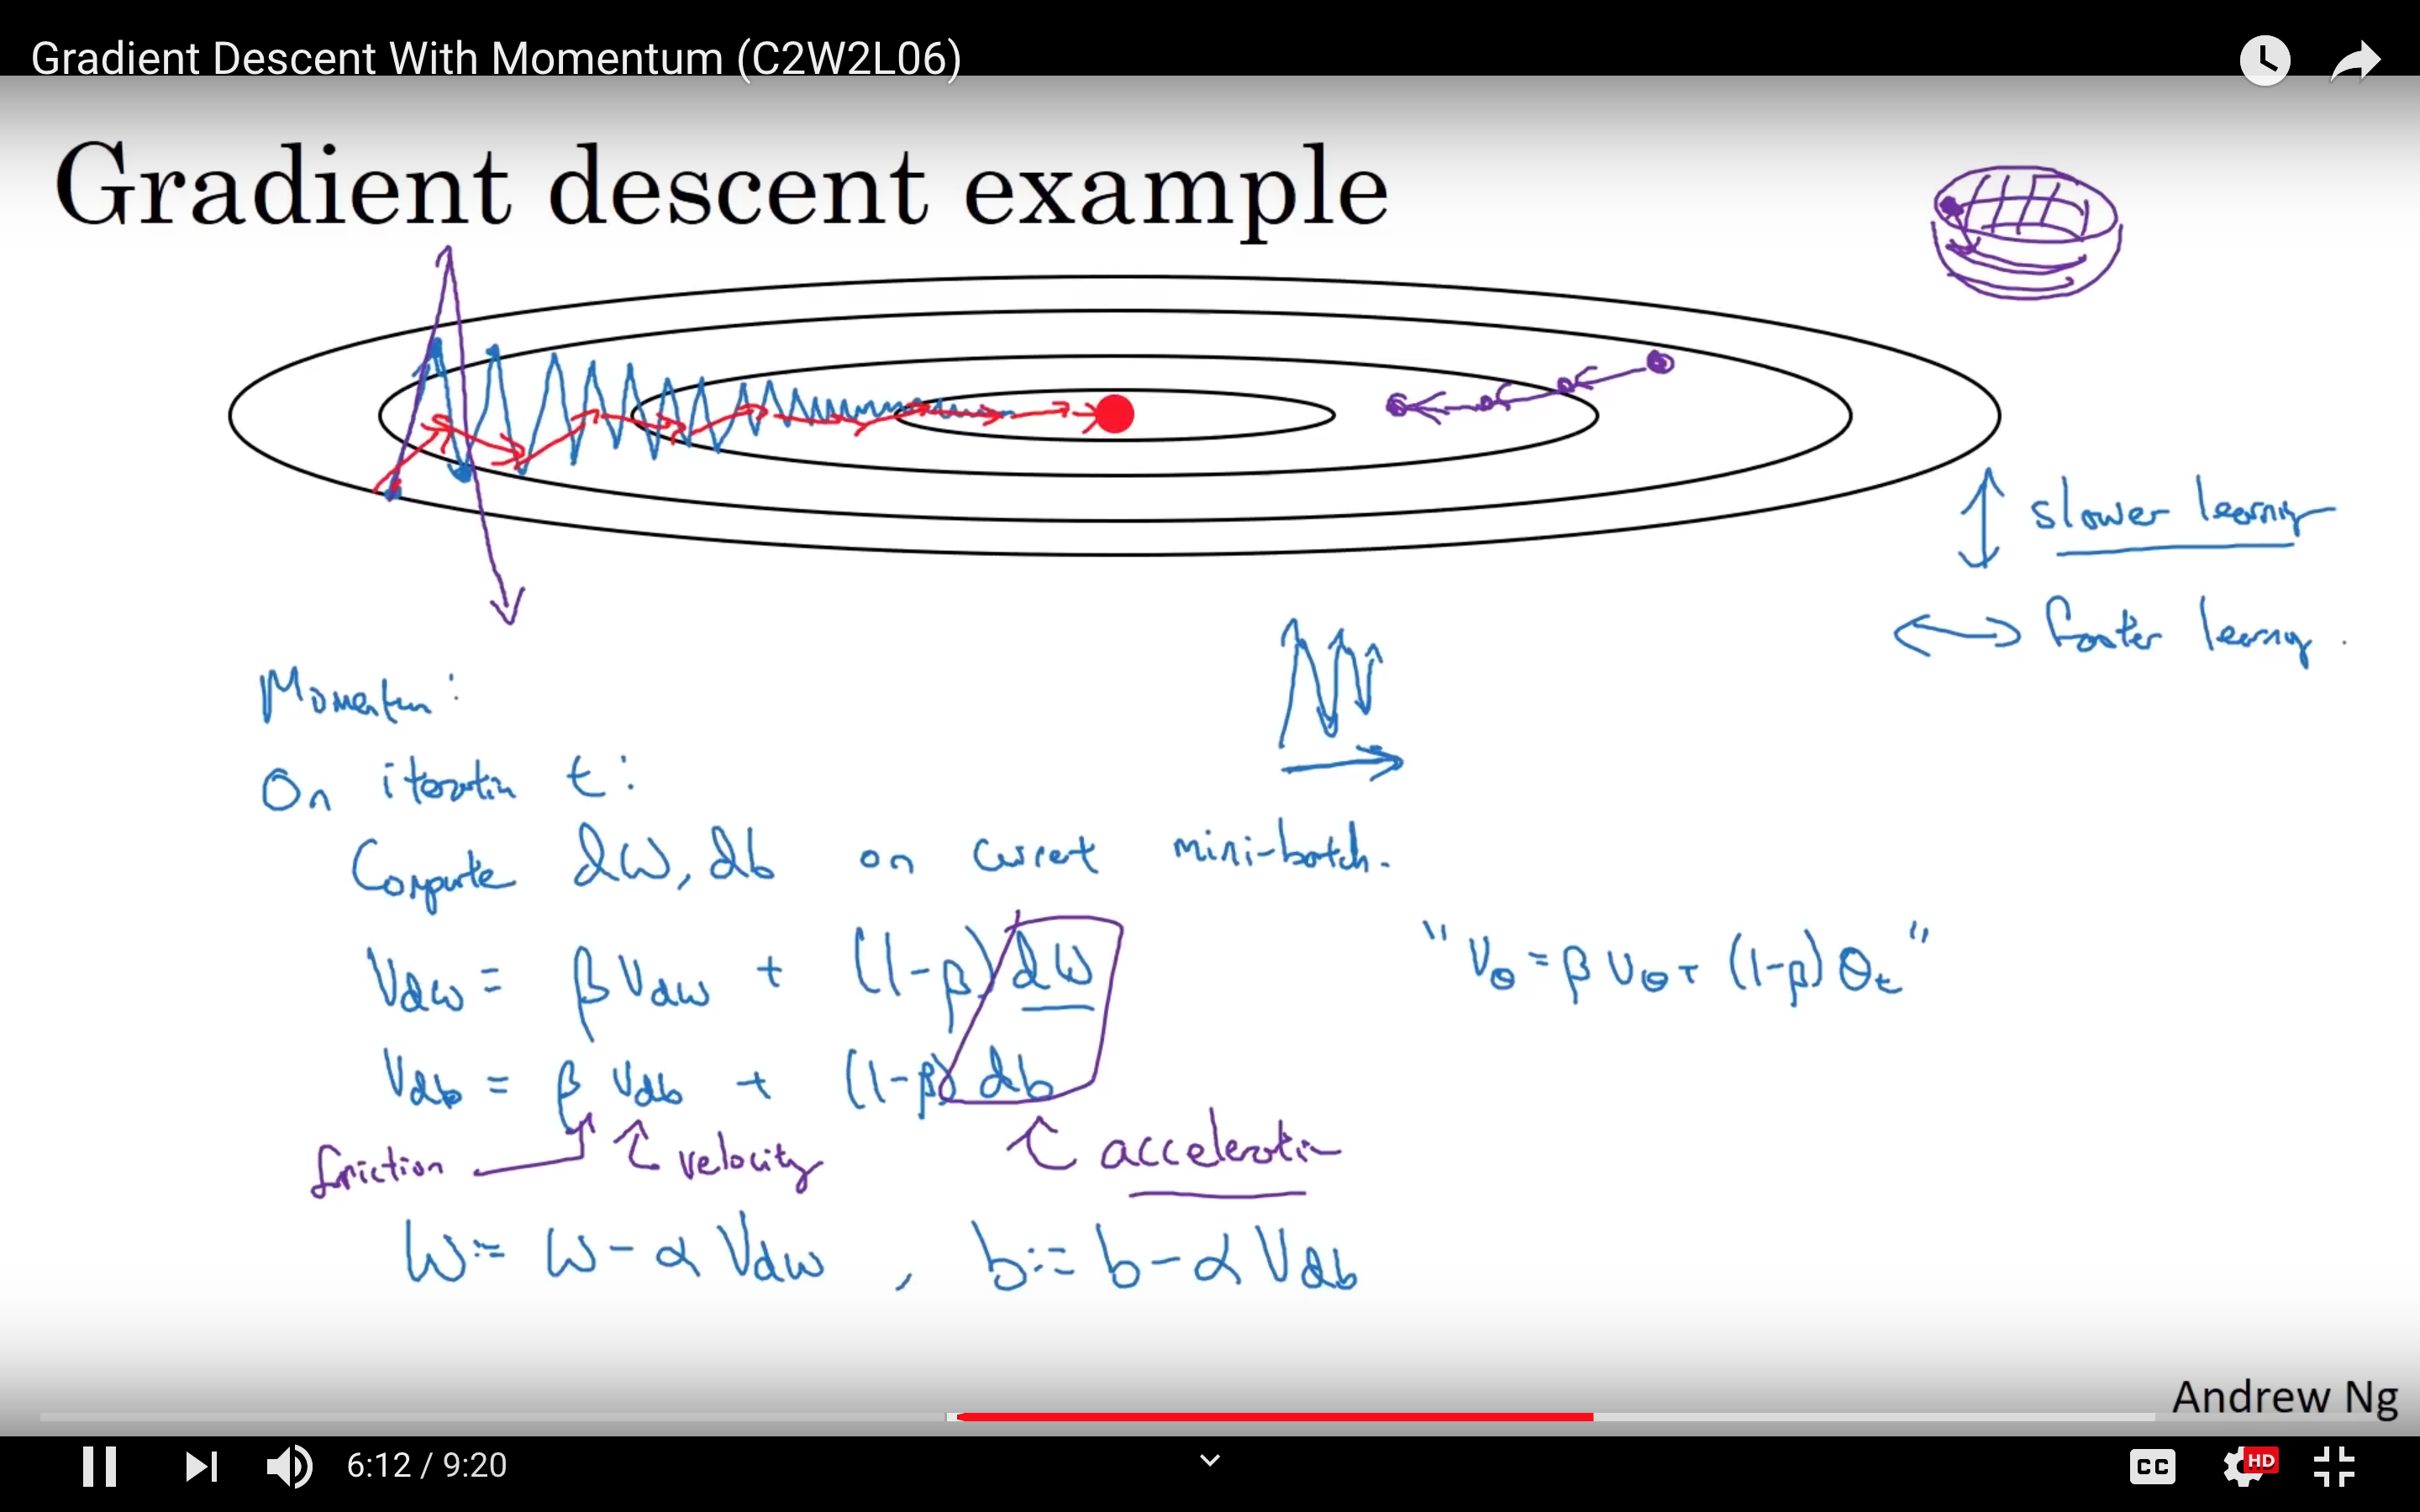 Gradient Descent With Momentum (C2W2L06)
Gradient descent example
slower learning
faster learning.
Momentum:
On iteration t:
Compute dW, db on current mini-batch.
Vdw = β Vdw + (1-β) dW
"Vθ = β Vθ + (1-β) θt"
Vdb = β Vdb + (1-β) db
friction velocity acceleration
W := W - α Vdw , b := b - α Vdb
Andrew Ng
6:12 / 9:20
CC
HD